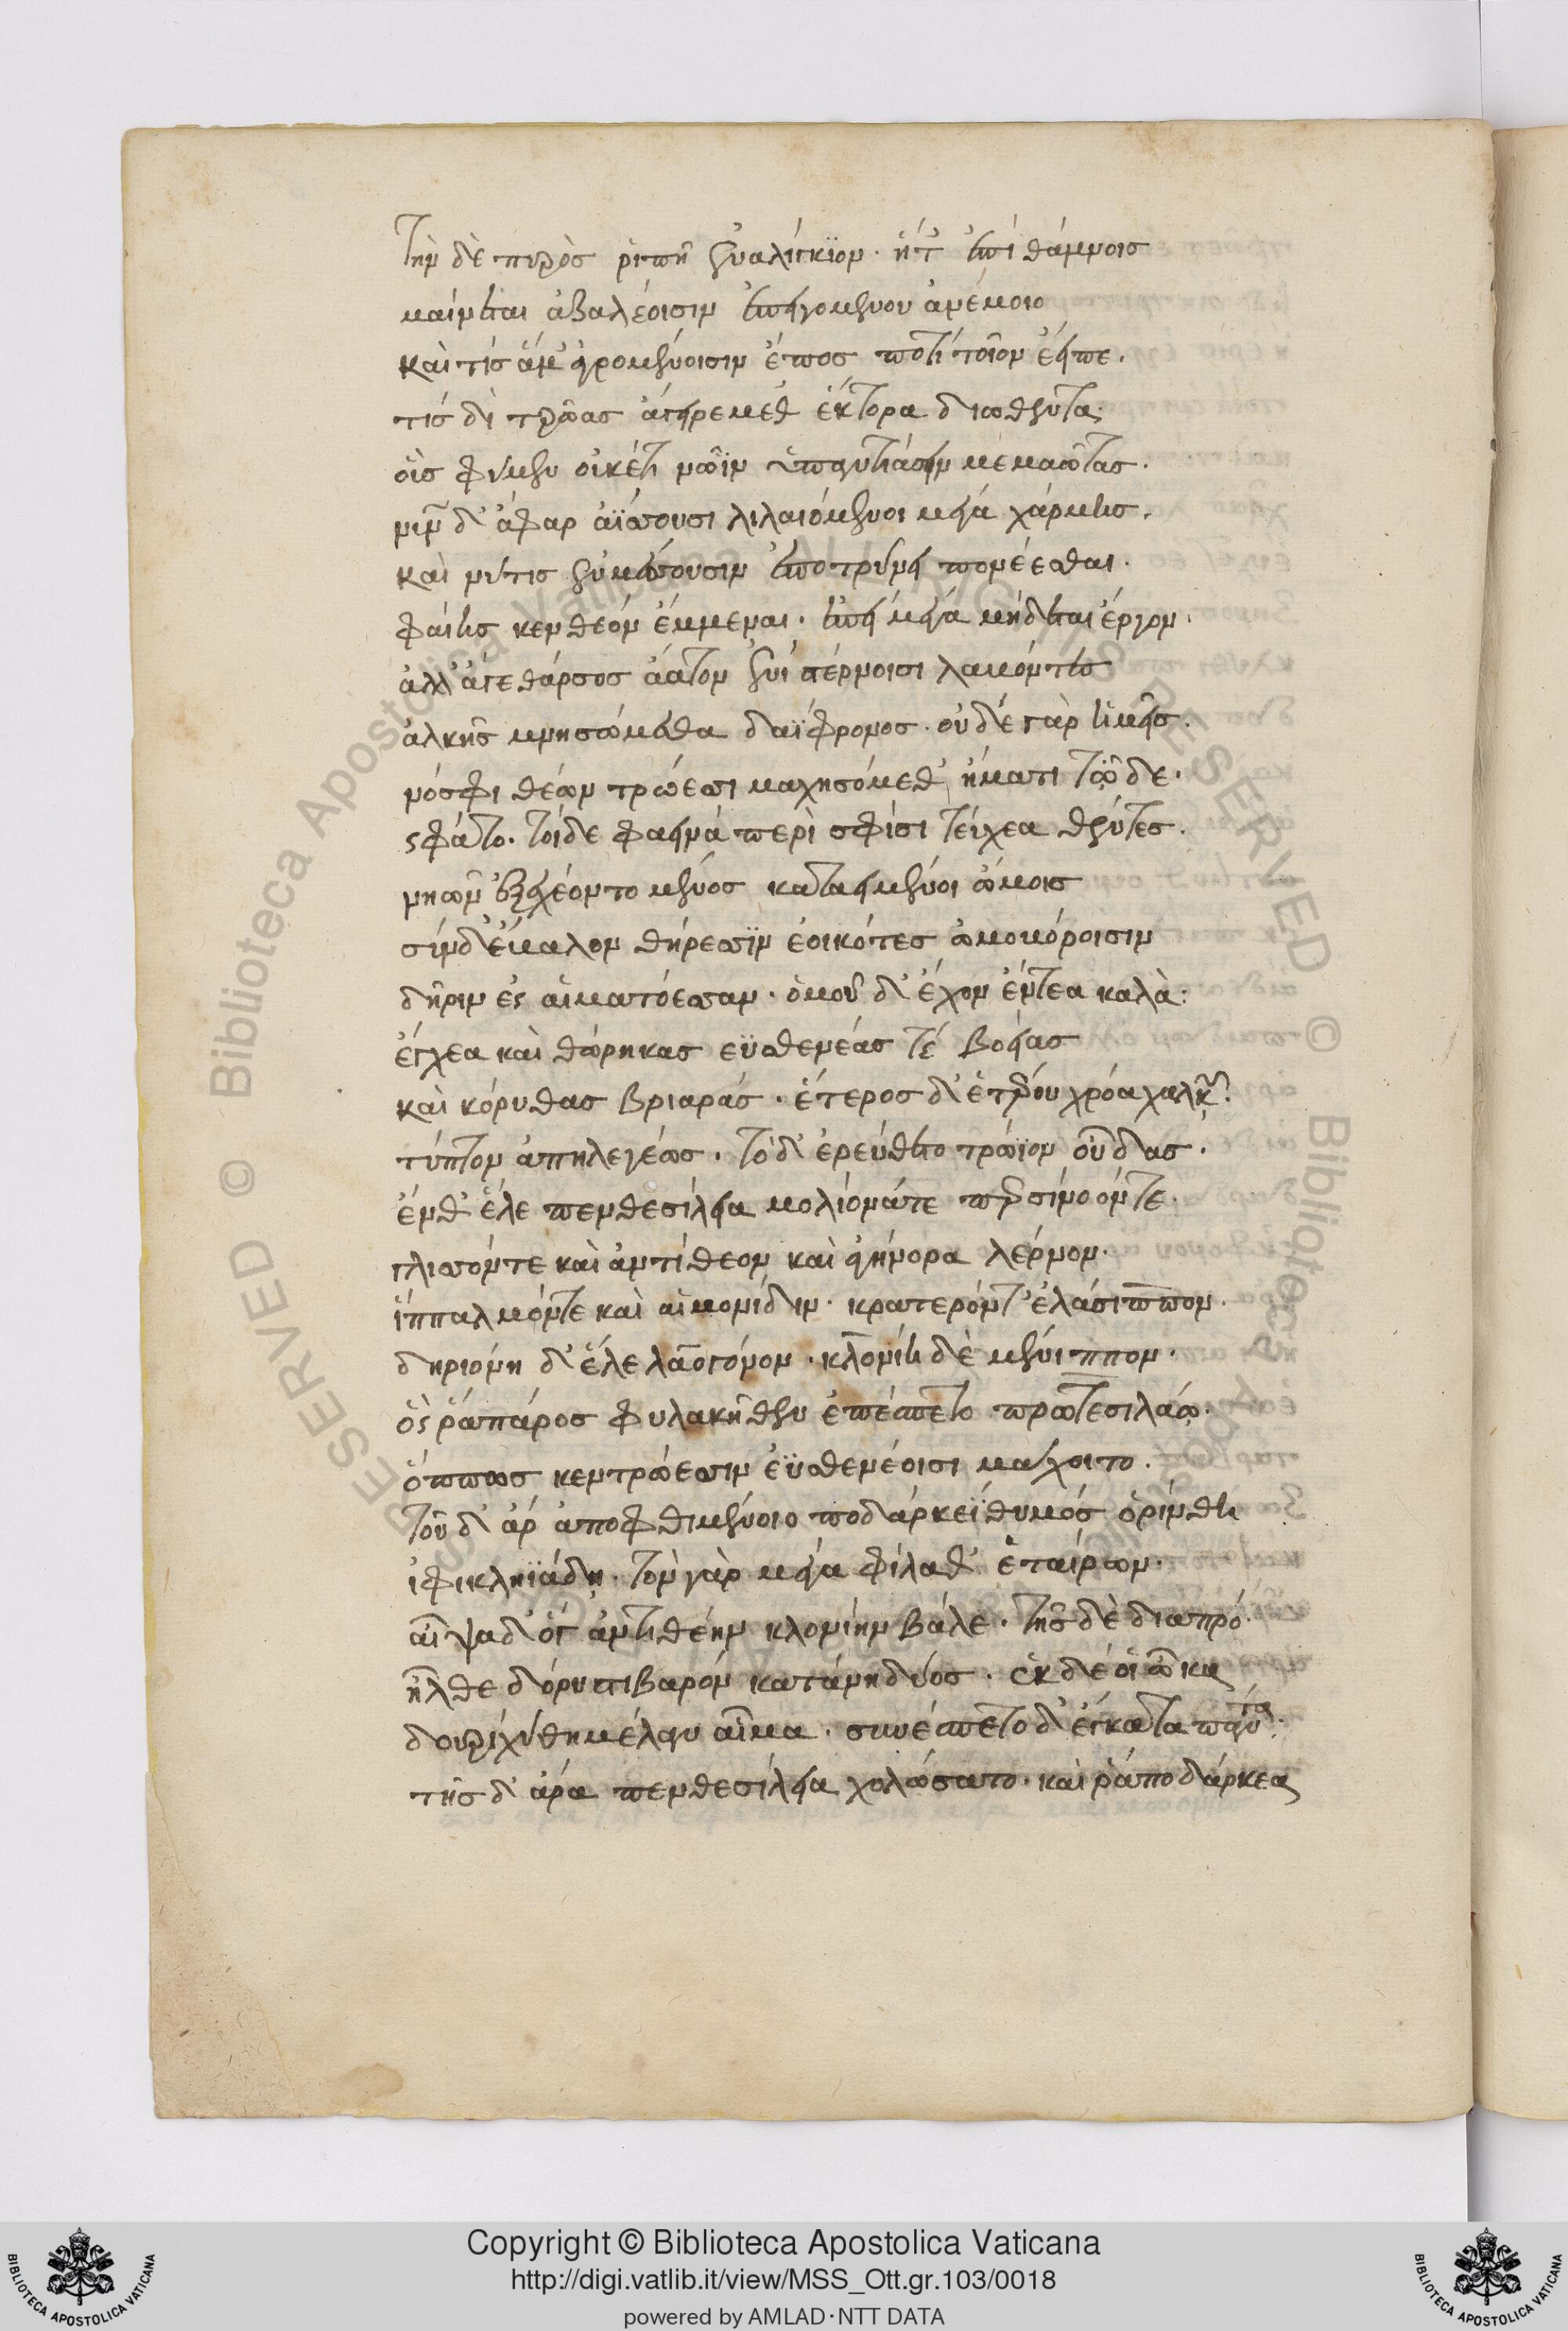 τὴν δὲ πυρὸς ῥιπῇ ἐναλίγκϊον· ἥτ' ἐπὶ θάμνοις
μαίνεται ἀζαλέοισιν ἐπειγομένου ἀνέμοιο
καὶ τίς ἅμ' ἀγρομένοισιν ἔπος ποτὶ τοῖον ἔειπε.
τίς δὴ τρῶας ἄγειρε μεθ' ἕκτορα διωθέντα.
οὓς φάμεν οὐκέτι νῶϊν ὑπαντιάσειν μεμαῶτας.
νῦν δ' ἄφαρ ἀΐσσουσι λιλαιόμενοι μέγα χάρμης.
καὶ νύτις ἐν μέσσουσιν ἐποτρύνει πονέεσθαι.
φαίης κεν θεὸν ἔμμεναι. ἐπεὶ μέγα μήδεται ἔργον.
ἀλλ' ἄγε θάρσος ἄατον ἐνὶ στέρνοισι λαβόντες
ἀλκῆς μνησώμεσθα δαΐφρονος. οὐδὲ γὰρ ἡμεῖς.
νόσφι θεῶν τρώεσσι μαχησόμεθ' ἤματι τῷδε.
ὣς φάτο. τοὶ δὲ φαεινὰ περὶ σφίσι τεύχεα θέντες.
νηῶν ἐξεχέοντο μένος καταειμένοι ὤμοις
σὺν δ' ἔβαλον θήρεσσϊν ἐοικότες ὠμοβόροισιν
δῆριν ἐς αἱματόεσσαν. ὁμοῦ δ' ἔχον ἔντεα καλὰ:
ἔγχεα καὶ θώρηκας ἐϋσθενέας τὲ βοείας
καὶ κόρυθας βριαράς. ἕτερος δ' ἑτέρου χρόα χαλκῷ.
τύπτον ἀπηλεγέως. τὸ δ' ἐρεύθετο τρώϊον οὖδας.
ἔνθ' ἕλε πενθεσίλεια μολίονά τε περσίνοόν τε.
ἰλισσόν τε καὶ ἀντίθεον καὶ ἀγήνορα λέρνον.
ἱππαλμόν τε καὶ αἱμονίδην. κρατερόν τ' ἐλάσιππον.
δηριόνη δ' ἕλε λαόγονον. κλονίη δὲ μένιππον.
ὅς ῥα πάρος φυλακῆθεν ἐπέσπετο πρωτεσιλάῳ.
ὅππως κεν τρώεσσιν ἐϋσθενέοισι μάχοιτο.
τοῦ δ' ἂρ ἀποφθιμένοιο ποδάρκεϊ θυμὸς ὀρίνθη
ἰφικληϊάδη. τὸν γὰρ μέγα φίλαθ' ἑταίρων.
αἶψα δ' ὅγ' ἀντιθέην κλονίην βάλε. τῆς δὲ διαπρό.
ἦλθε δόρυ στιβαρὸν κατὰ νηδύος. ἐκ δέ οἱ ὦκα
δουρὶ χύθη μέλαν αἷμα. συνέσπετο δ' ἔγκατα πάντα.
τῆς δ' ἄρα πενθεσίλεια χολώσατο. καὶ ῥα ποδάρκεα
Copyright © Biblioteca Apostolica Vaticana
http://digi.vatlib.it/view/MSS_Ott.gr.103/0018
powered by AMLAD·NTT DATA